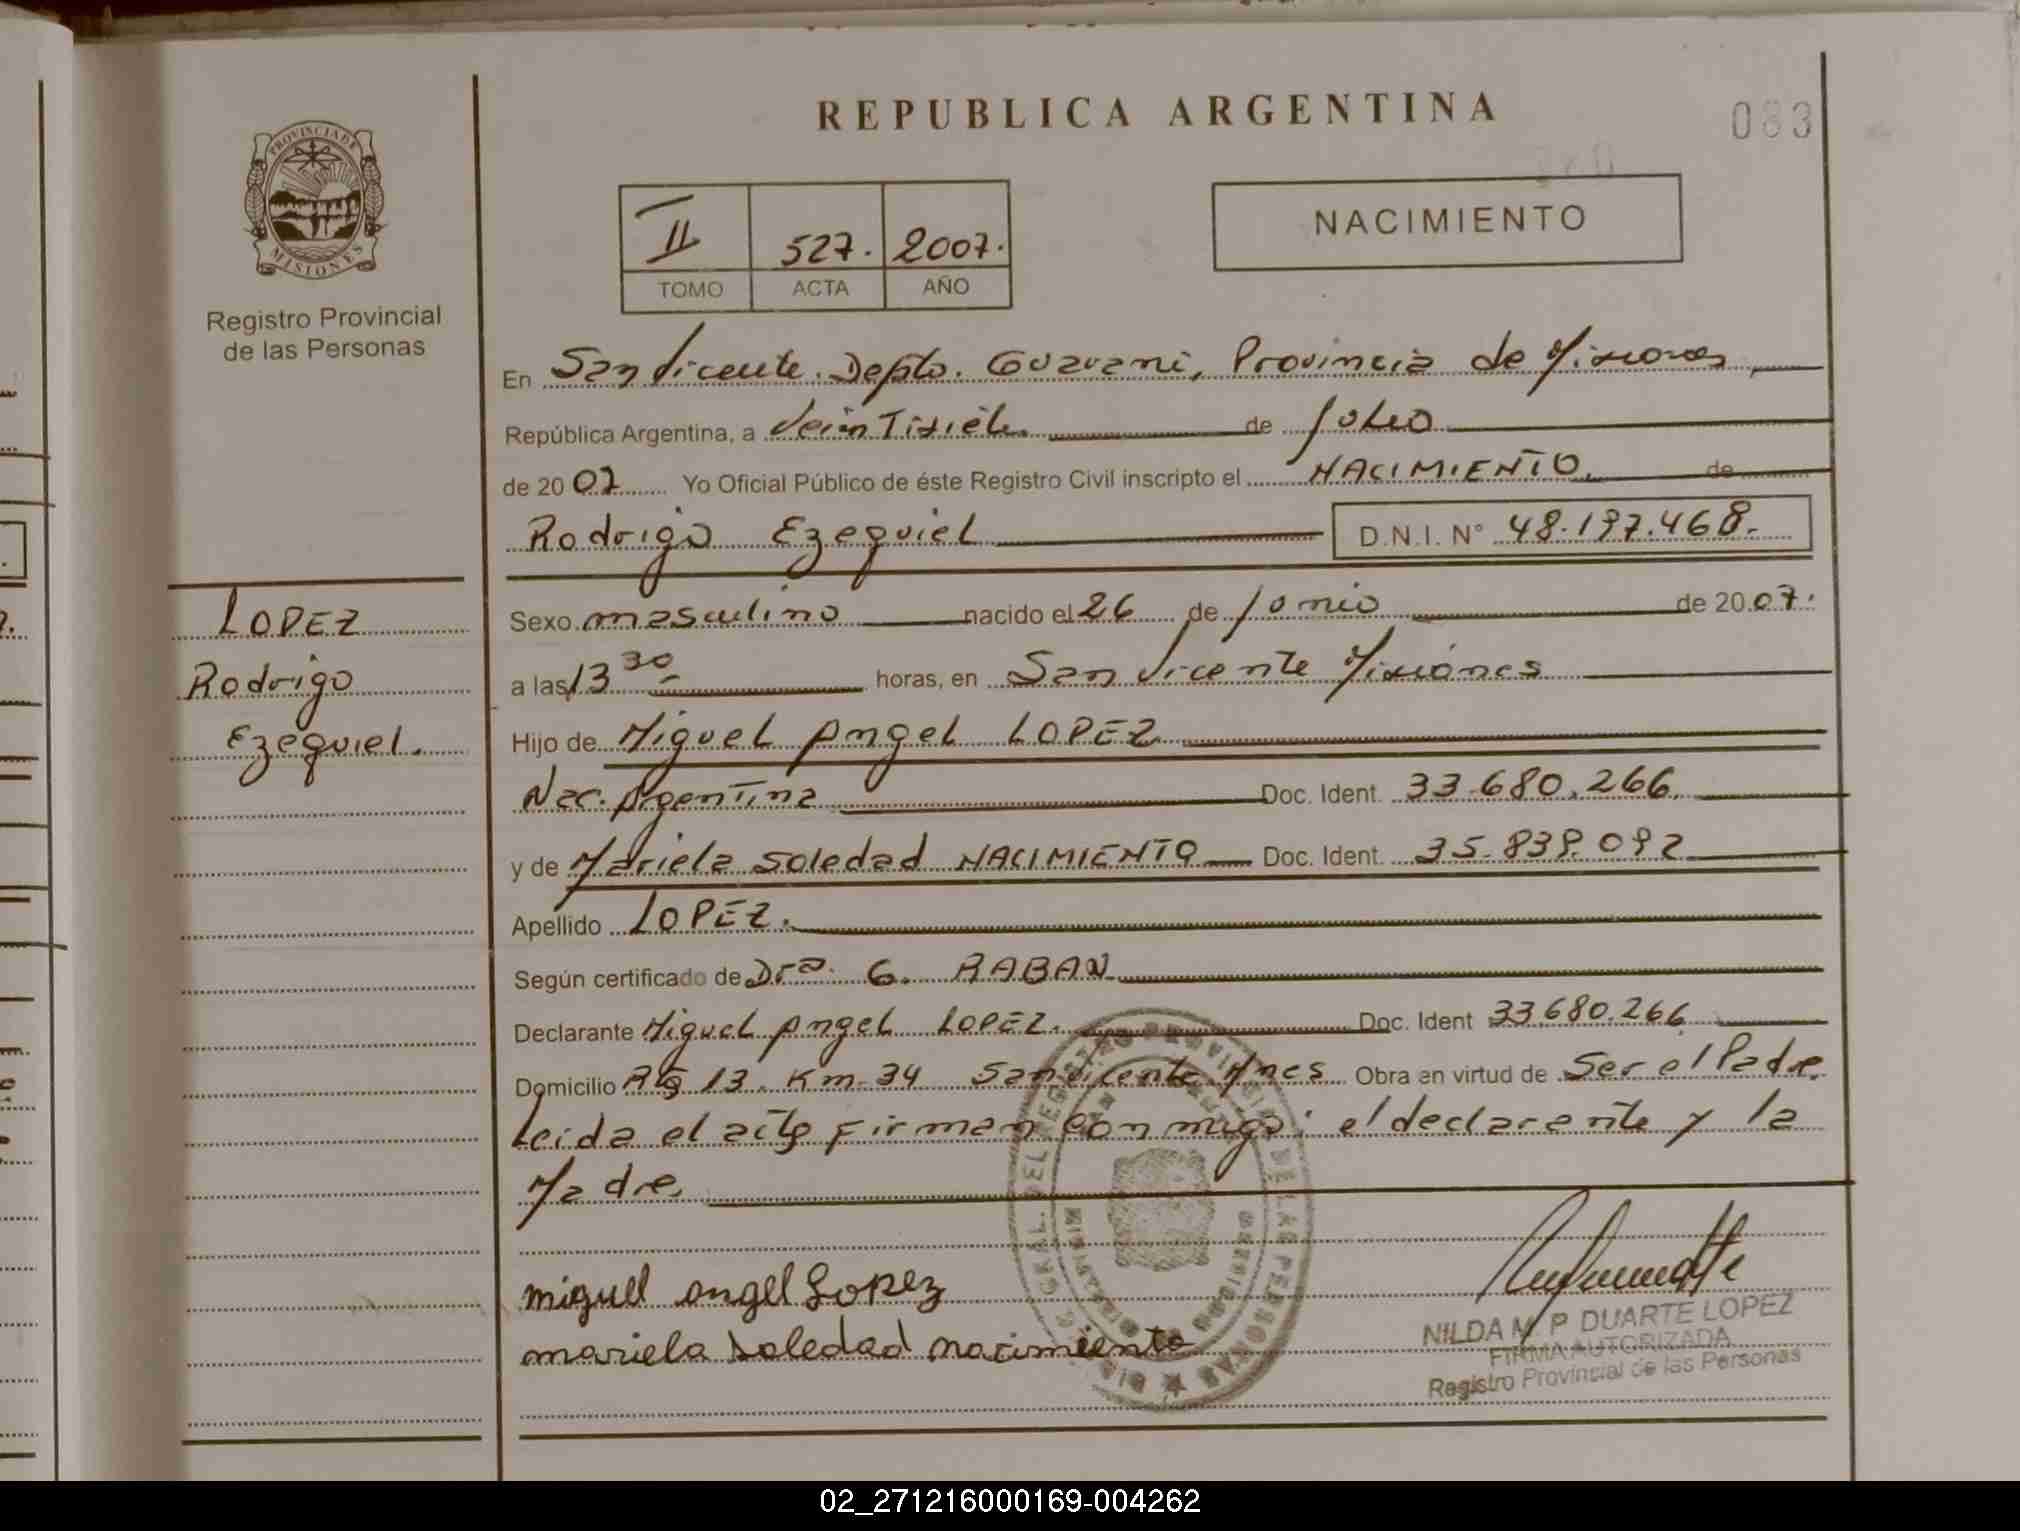 REPUBLICA ARGENTINA
083
PROVINCIA DE
MISIONES
Registro Provincial
de las Personas
II 527. 2007.
TOMO ACTA AÑO
NACIMIENTO
En San Vicente. Depto. Guarani, Provincia de Misiones,
República Argentina, a Veintisiete de Julio
de 2007 Yo Oficial Público de éste Registro Civil inscripto el NACIMIENTO. de
Rodrigo Ezequiel D.N.I. N° 48.197.468.
LOPEZ
Rodrigo
Ezequiel.
Sexo masculino nacido el 26 de Junio de 2007.
a las 13 30 horas, en San Vicente Misiones
Hijo de Miguel Angel LOPEZ
Nac. Argentina Doc. Ident. 33.680.266.
y de Mariela Soledad NACIMIENTO Doc. Ident. 35.839.092
Apellido LOPEZ.
Según certificado de Dra. G. RABAN
Declarante Miguel Angel LOPEZ. Doc. Ident 33.680.266
Domicilio 13. Km. 34 San Vicente. Mnes Obra en virtud de Ser el Padre.
Leida el acta Firman conmigo: el declarante y la
Madre.
miguel angel Lopez
mariela soledad nacimiento
NILDA M. P. DUARTE LOPEZ
FIRMA AUTORIZADA
Registro Provincial de las Personas
02_271216000169-004262